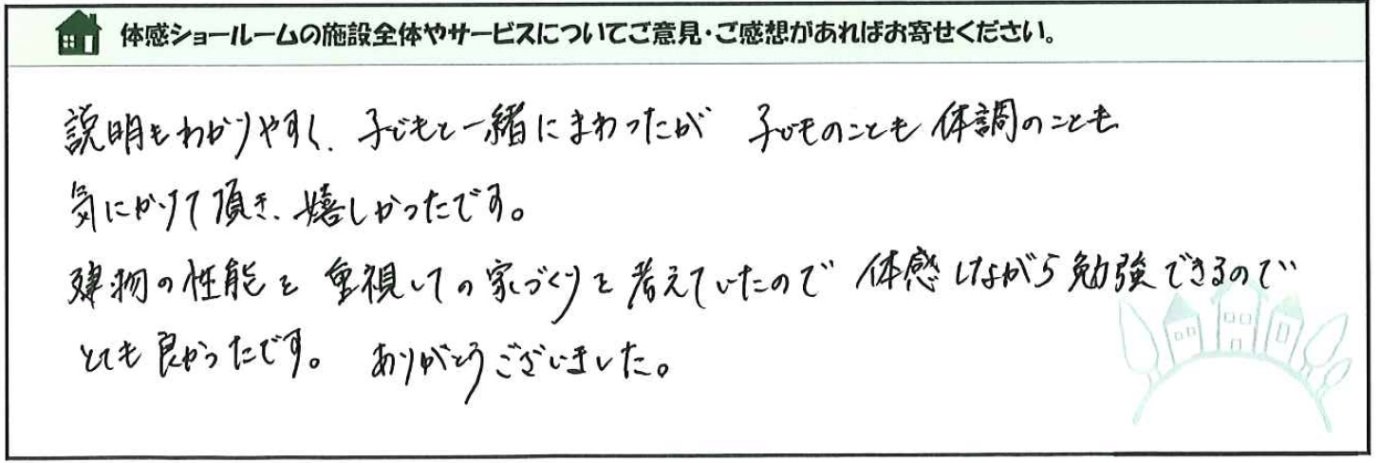 体感ショールームの施設全体やサービスについてご意見・ご感想があればお寄せください。
説明もわかりやすく、子どもと一緒にまわったが 子どものことも体調のことも
気にかけて頂き、嬉しかったです。
建物の性能を重視しての家づくりを考えていたので 体感しながら勉強できるので
とても良かったです。 ありがとうございました。